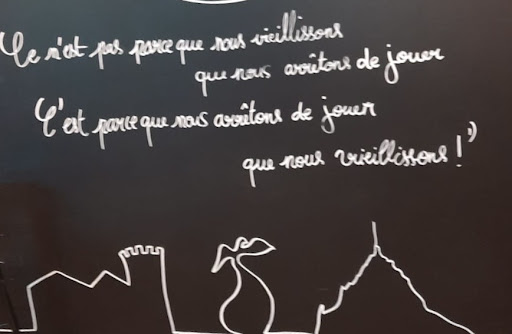 Ce n'est pas parce que nous vieillissons
que nous arrêtons de jouer
C'est parce que nous arrêtons de jouer
que nous vieillissons !"